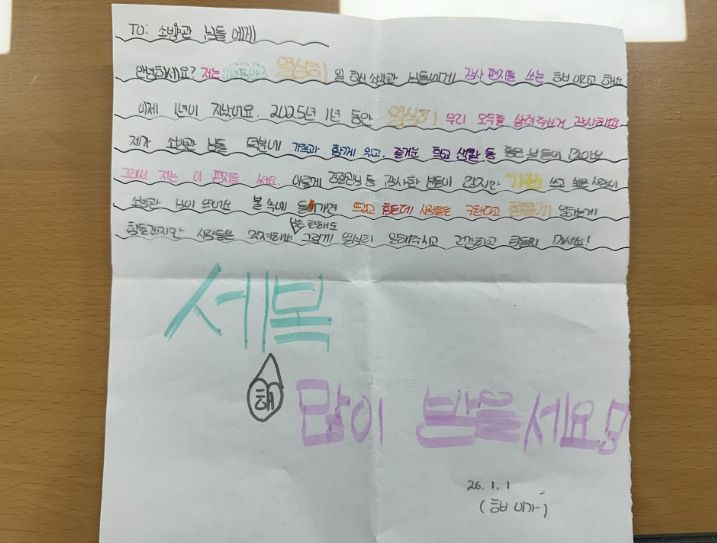 TO: 소방관 님들 에게
안녕하세요? 저는 열심히 일 하신 소방관 님들에게 감사 편지를 쓰는 라고 해요.
이제 1년이 지났어요. 2025년 1년 동안 열심히 우리 모두를 살려주셔서 감사해요.
제가 소방관 님들 덕분에 가족과 함께 있고, 즐거운 학교 생활 등 좋은 날들이 많아요
그래서 저는 이 편지를 써요. 이렇게 경찰관님 등 감사한 분들이 많지만 가장 쓰고 싶은 사람이
소방관 님이 쓰여요 불 속에 들어가면 뜨겁고 힘든데 사람들을 구한다고 힘들게 일하는게
힘들겠지만 사람들을 걱정해서 그렇게 열심히 일해주시고 건강하고 마세요!
새복
해
많이 받으세요!
26.1.1